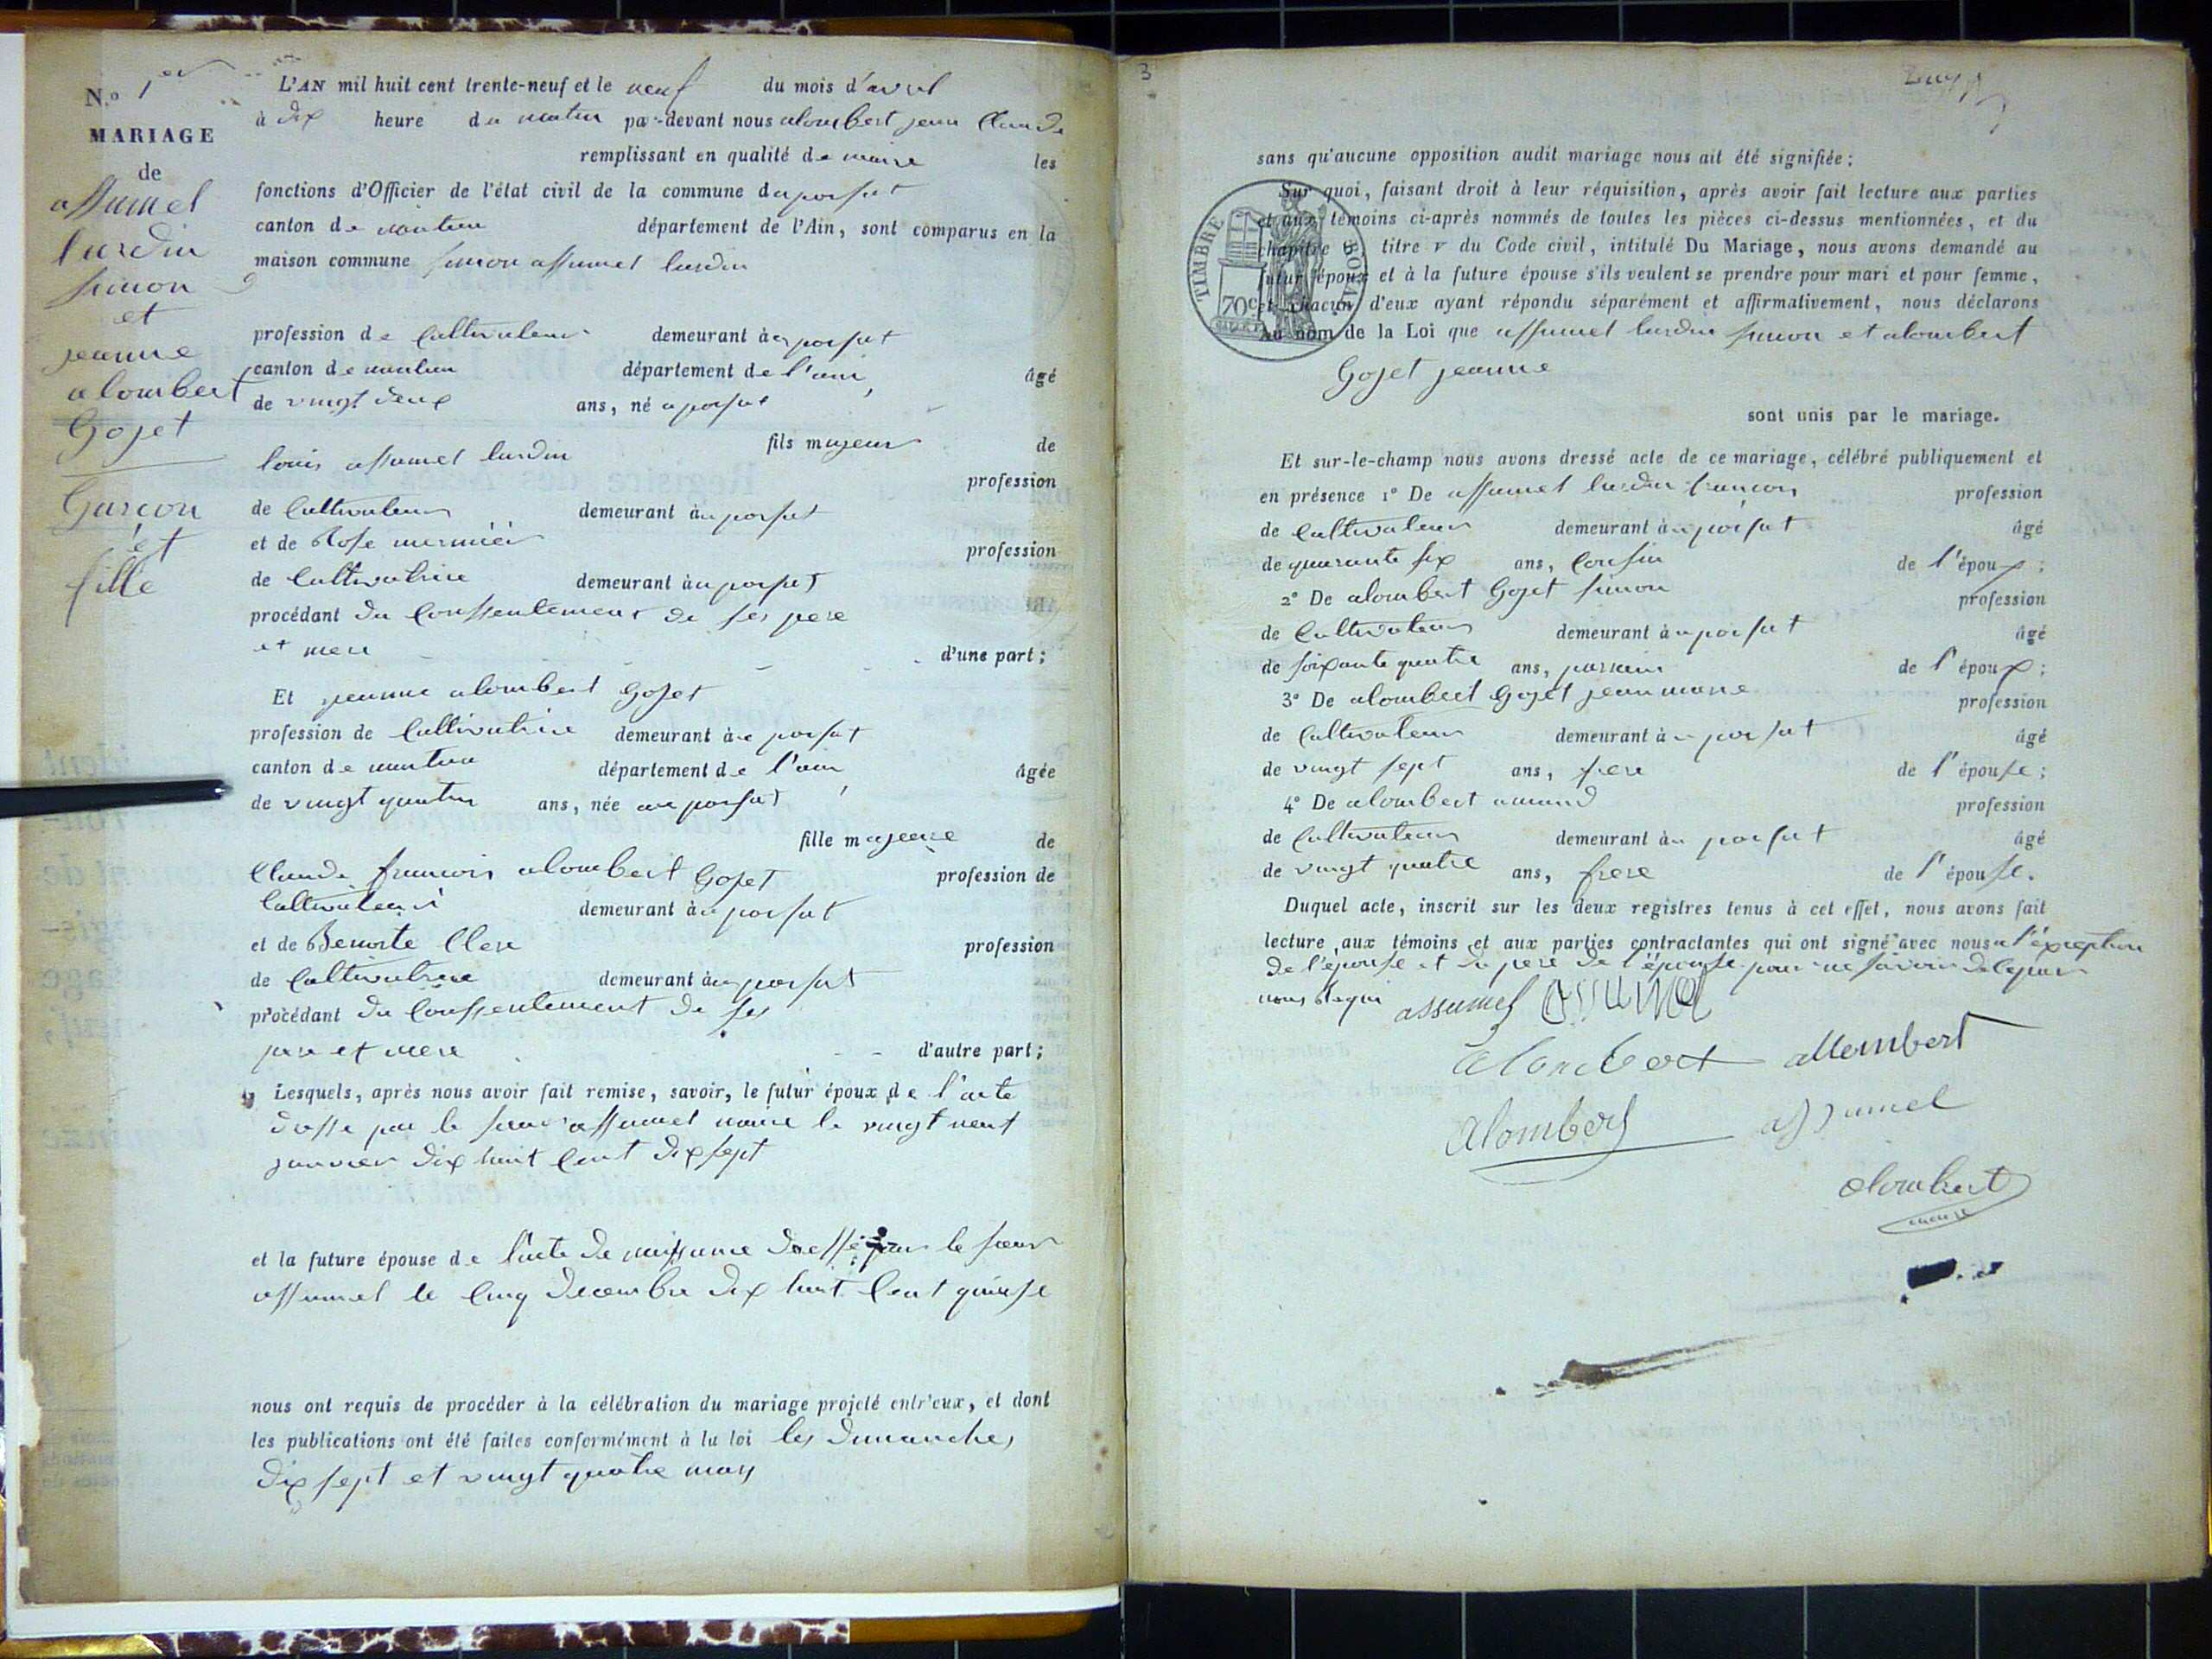 N.o 1er
MARIAGE
de
assumel
lardin
simon
et
jeanne
alombert
Gojet
Garcon
et
fille
L'AN mil huit cent trente-neuf et le neuf du mois d'avril
à dix heure du matin par-devant nous alombert jean Claude
remplissant en qualité de maire les
fonctions d'Officier de l'état civil de la commune du poisat
canton de département de l'Ain, sont comparus en la
maison commune simon assumel lurdin
profession de Cultivateur demeurant au poisat
canton de département de l'ain âgé
de vingt deux ans, né a poisat
fils majeur de
louis assumel lurdin
profession
de Cultivateur demeurant au poisat
et de Rose profession
de Cultivatrice demeurant au poisat
procédant du Conssentement de ses pere
et mere d'une part;
Et jeanne alombert Gojet
profession de Cultivatrice demeurant au poisat
canton de département de l'ain âgée
de vingt quatre ans, née au poisat
fille majeure de
Claude francois alombert Gojet profession de
Cultivateur demeurant au poisat
et de Benoite Clere profession
de Cultivatrice demeurant au poisat
procédant du Conssentement de ses
pere et mere d'autre part;
Lesquels, après nous avoir fait remise, savoir, le futur époux de l'acte
dressé par le sieur assumel maire le vingt neuf
janvier dix huit Cent dix sept
et la future épouse de l'acte de naissance dressé par le sieur
assumel le Cinq decembre dix huit Cent quinse
nous ont requis de procéder à la célébration du mariage projeté entr'eux, et dont
les publications ont été faites conformément à la loi les dimanches
dix sept et vingt quatre mars
3
sans qu'aucune opposition audit mariage nous ait été signifiée;
Sur quoi, faisant droit à leur réquisition, après avoir fait lecture aux parties
et aux témoins ci-après nommés de toutes les pièces ci-dessus mentionnées, et du
chapitre titre v du Code civil, intitulé Du Mariage, nous avons demandé au
futur époux et à la future épouse s'ils veulent se prendre pour mari et pour femme,
et chacun d'eux ayant répondu séparément et affirmativement, nous déclarons
Au nom de la Loi que assumel lurdin simon et alombert
Gojet jeanne
sont unis par le mariage.
TIMBRE ROYAL
70c
Et sur-le-champ nous avons dressé acte de ce mariage, célébré publiquement et
en présence 1° De assumel lurdin francois profession
de Cultivateur demeurant au poisat âgé
de quarante six ans, Cousin de l'époux;
2° De alombert Gojet simon profession
de Cultivateur demeurant au poisat âgé
de soixante quatre ans, parrain de l'époux;
3° De alombert Gojet jean marie profession
de Cultivateur demeurant au poisat âgé
de vingt sept ans, frere de l'épouse;
4° De alombert amand profession
de Cultivateur demeurant au poisat âgé
de vingt quatre ans, frere de l'épouse.
Duquel acte, inscrit sur les deux registres tenus à cet effet, nous avons fait
lecture aux témoins et aux parties contractantes qui ont signé avec nous a l'exception
de l'épouse et du pere de l'épouse pour ne savoir de ce par
nous
assumel assumel
alombert allombert
alombert assumel
alombert
maire